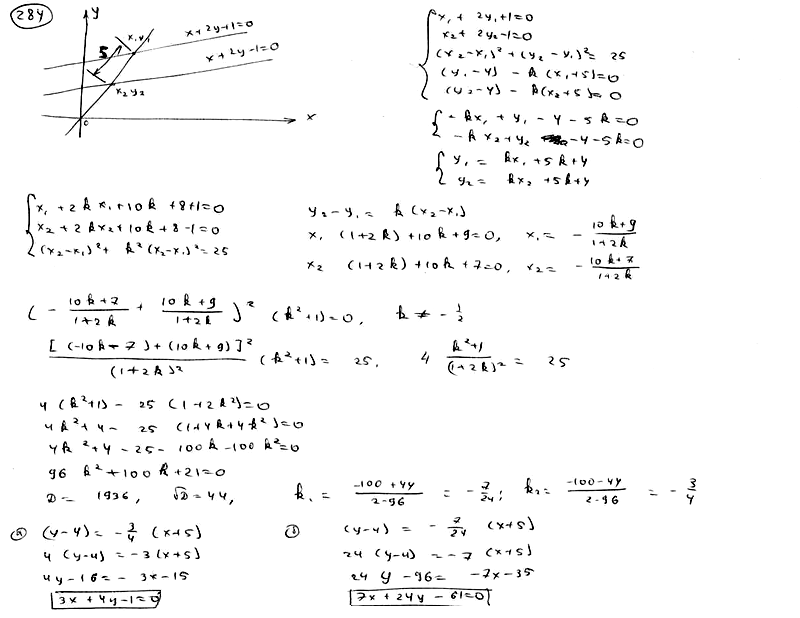 284
y
x₁ y₁
x+2y+1=0
x+2y-1=0
5
x₂ y₂
0
x
x₁ + 2y₁+1=0
x₂+ 2y₂-1=0
(x₂-x₁)²+(y₂-y₁)²= 25
(y₁-4) - k (x₁+5)=0
(y₂-4) - k(x₂+5)= 0
- kx₁ + y₁ -4-5k=0
-k x₂+y₂ -4-5k=0
y₁ = kx₁ +5k+4
y₂ = kx₂ +5k+4
x₁ +2k x₁+10k +8+1=0
x₂ + 2kx₂+10k+8-1=0
(x₂-x₁)²+ k²(x₂-x₁)²=25
y₂-y₁= k (x₂-x₁)
x₁ (1+2k)+10k+9=0, x₁= - (10k+9)/(1+2k)
x₂ (1+2k)+10k+7=0, x₂= - (10k+7)/(1+2k)
( - (10k+7)/(1+2k) + (10k+9)/(1+2k) )² (k²+1)=0, k ≠ - 1/2
[(-10k-7)+(10k+9)]²/(1+2k)² (k²+1)= 25, 4 (k²+1)/(1+2k)² = 25
4 (k²+1) - 25 (1+2k²)=0
4k²+4- 25 (1+4k+4k²)=0
4k²+4-25-100k-100k²=0
96 k²+100k+21=0
D= 1936, √D=44, k₁ = (-100+44)/(2·96) = - 7/24; k₂= (-100-44)/(2·96) = - 3/4
(y-4)= - 3/4 (x+5)
4 (y-4) =-3(x+5)
4y-16=- 3x-15
3x+4y-1=0
(y-4) = - 7/24 (x+5)
24 (y-4) =-7 (x+5)
24 y -96= -7x-35
7x+24y - 61=0